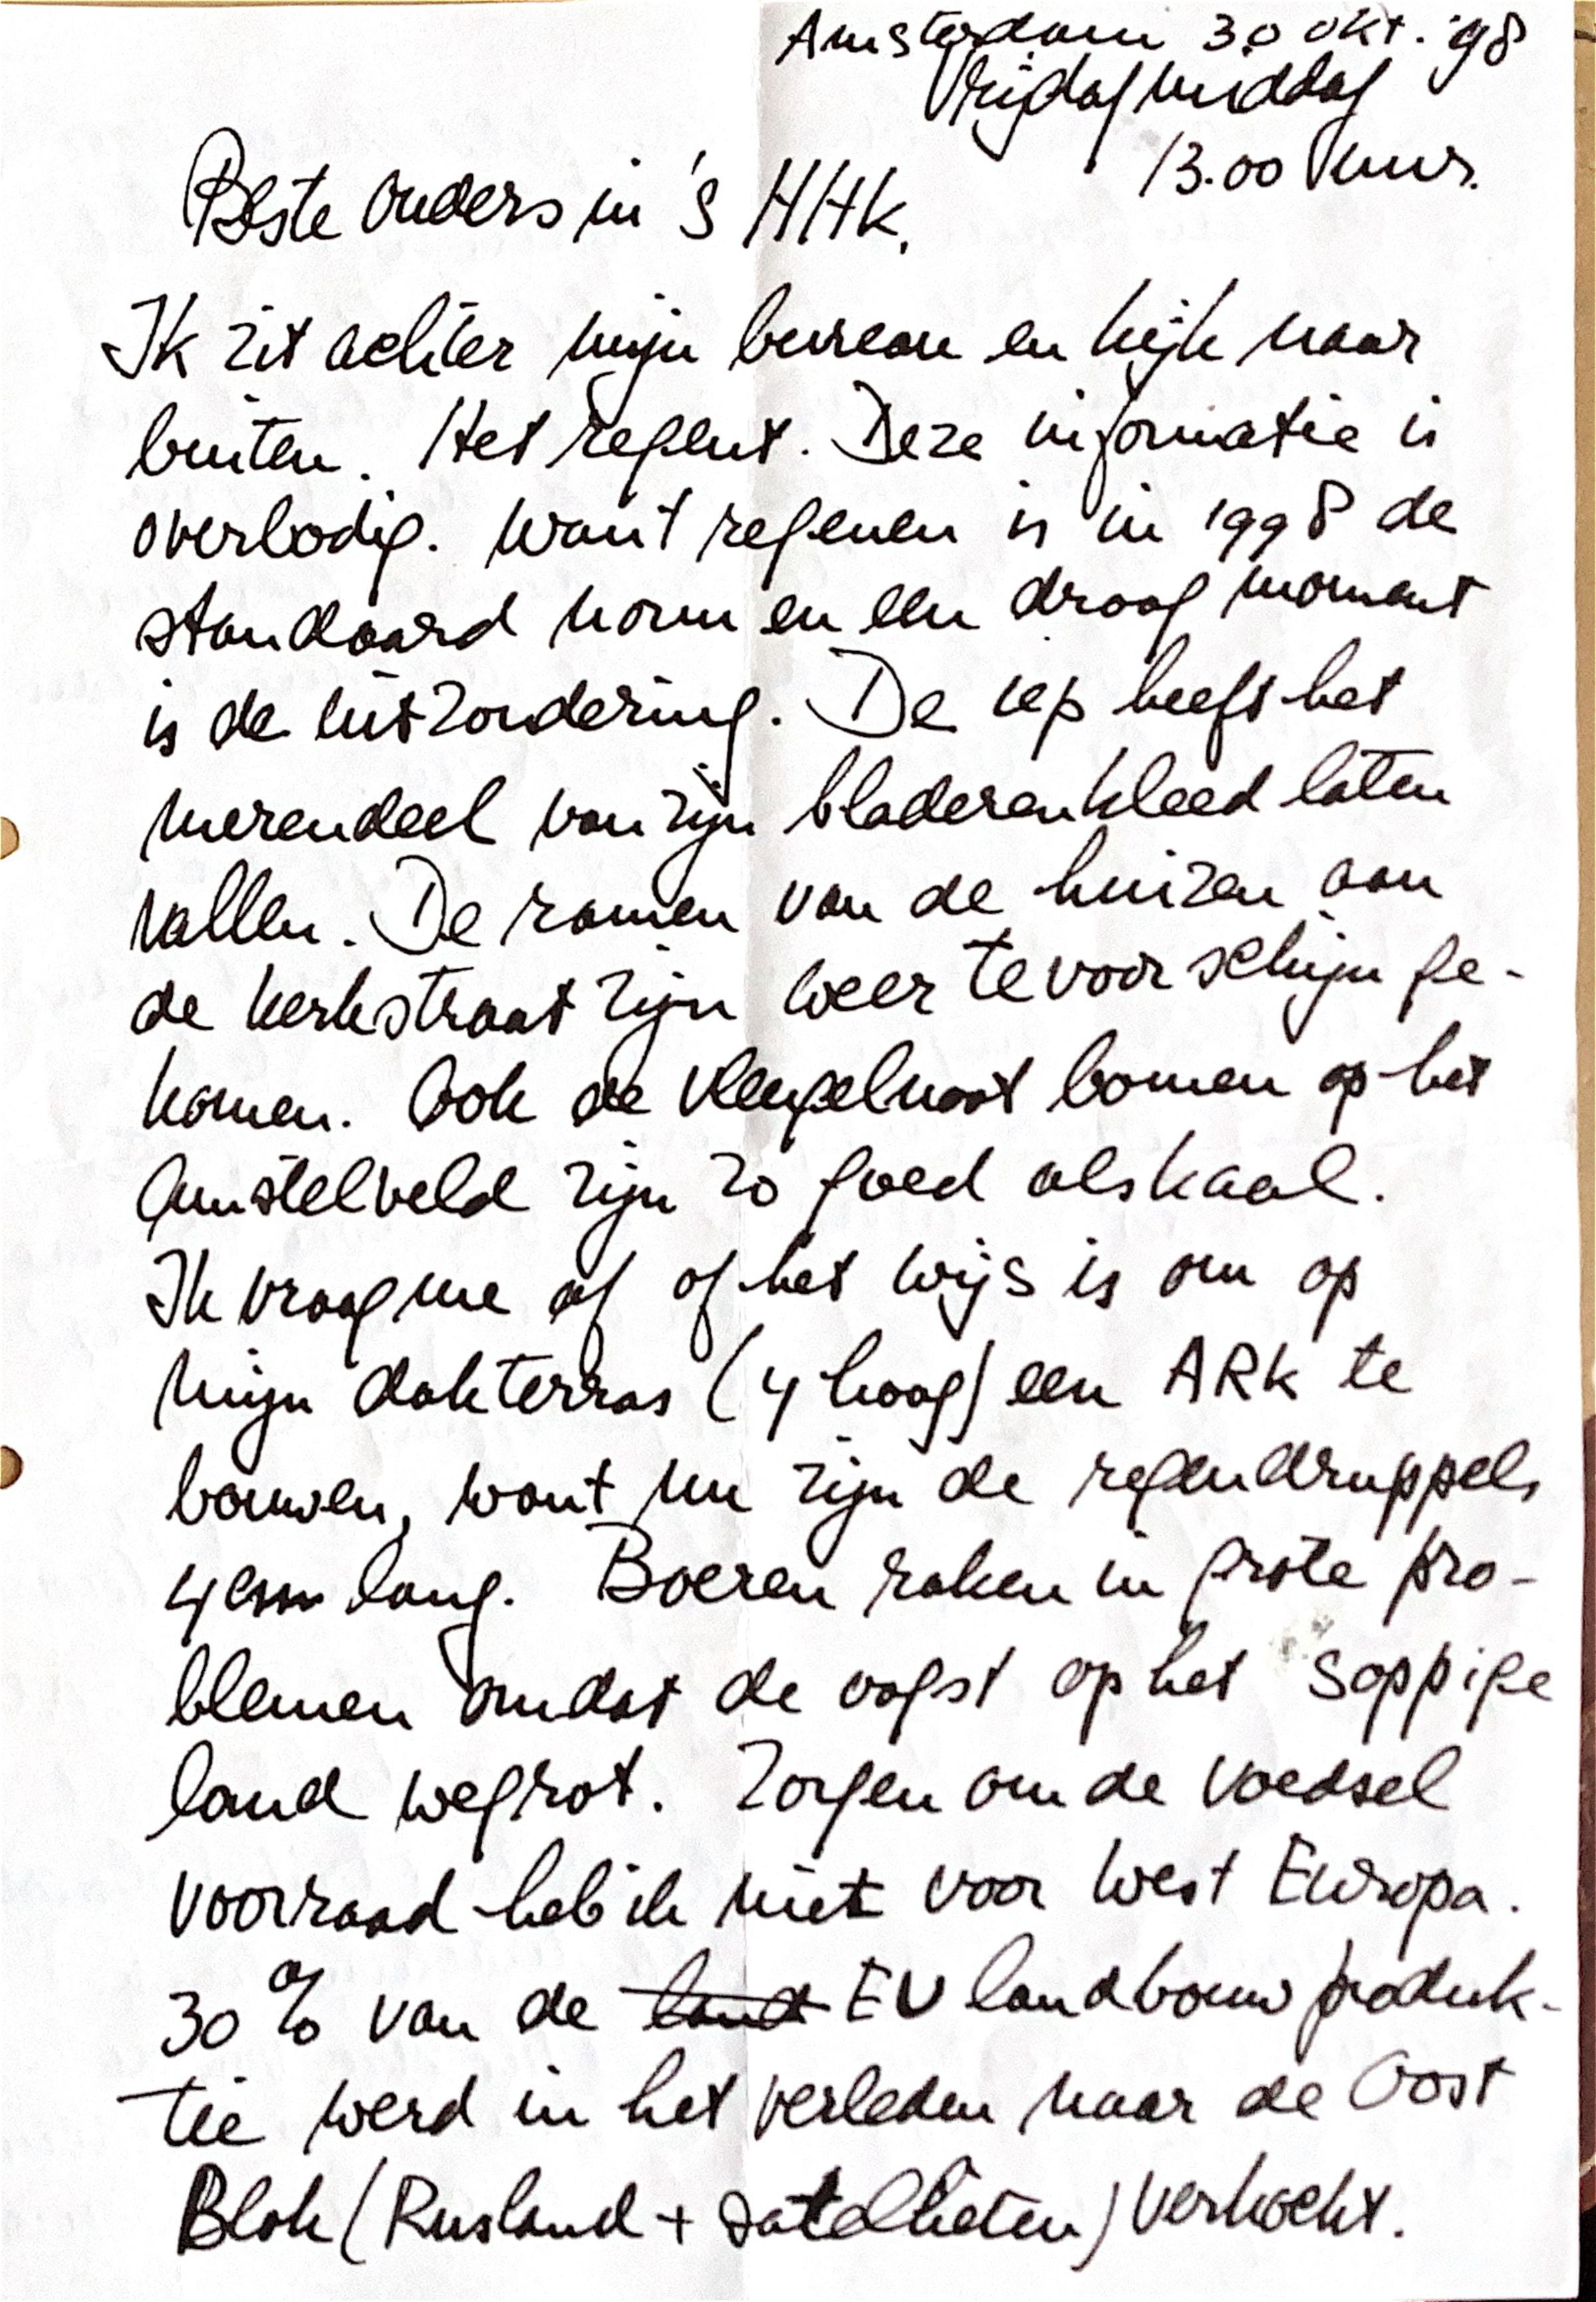 Amsterdam 30 okt. '98
Vrijdagmiddag
13.00 uur.
Beste ouders in 's HHK.
Ik zit achter mijn bureau en kijk naar
buiten. Het regent. Deze informatie is
overbodig. Want regenen is in 1998 de
standaard norm en een droog moment
is de uitzondering. De iep heeft het
merendeel van zijn bladerenkleed laten
vallen. De ramen van de huizen aan
de kerkstraat zijn weer tevoorschijn ge-
komen. Ook de vleugelnoot bomen op het
Amstelveld zijn zo goed als kaal.
Ik vraag me af of het wijs is om op
mijn dakterras (4 hoog) een ARK te
bouwen, want nu zijn de regendruppels
4 cm lang. Boeren raken in grote pro-
blemen omdat de oogst op het soppige
land wegrot. Zorgen om de voedsel
voorraad heb ik niet voor West Europa.
30% van de land EU landbouw produk-
tie werd in het verleden naar de Oost
Blok (Rusland + satellieten) verkocht.